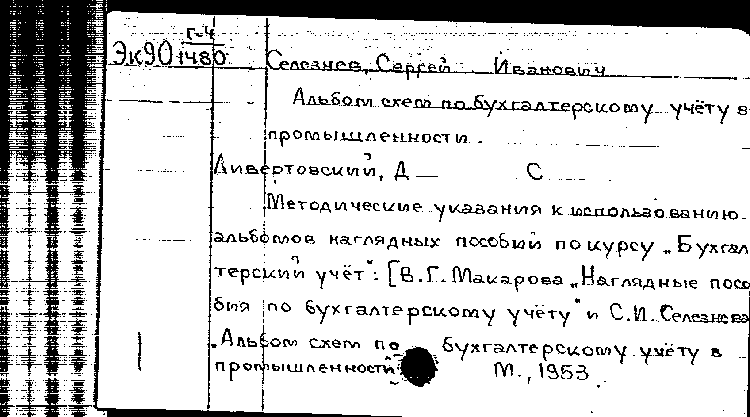 Г-4
Эк90 1480
Селезнев, Сергей Иванович
Альбом схем по бухгалтерскому учёту в
промышленности.
Ливертовский, Д С
Методические указания к использованию
альбомов наглядных пособий по курсу „Бухгал
терский учёт": [В.Г. Макарова „Наглядные посо
бия по бухгалтерскому учёту" и С.И. Селезнева
„Альбом схем по бухгалтерскому учёту в
промышленности
М., 1953.